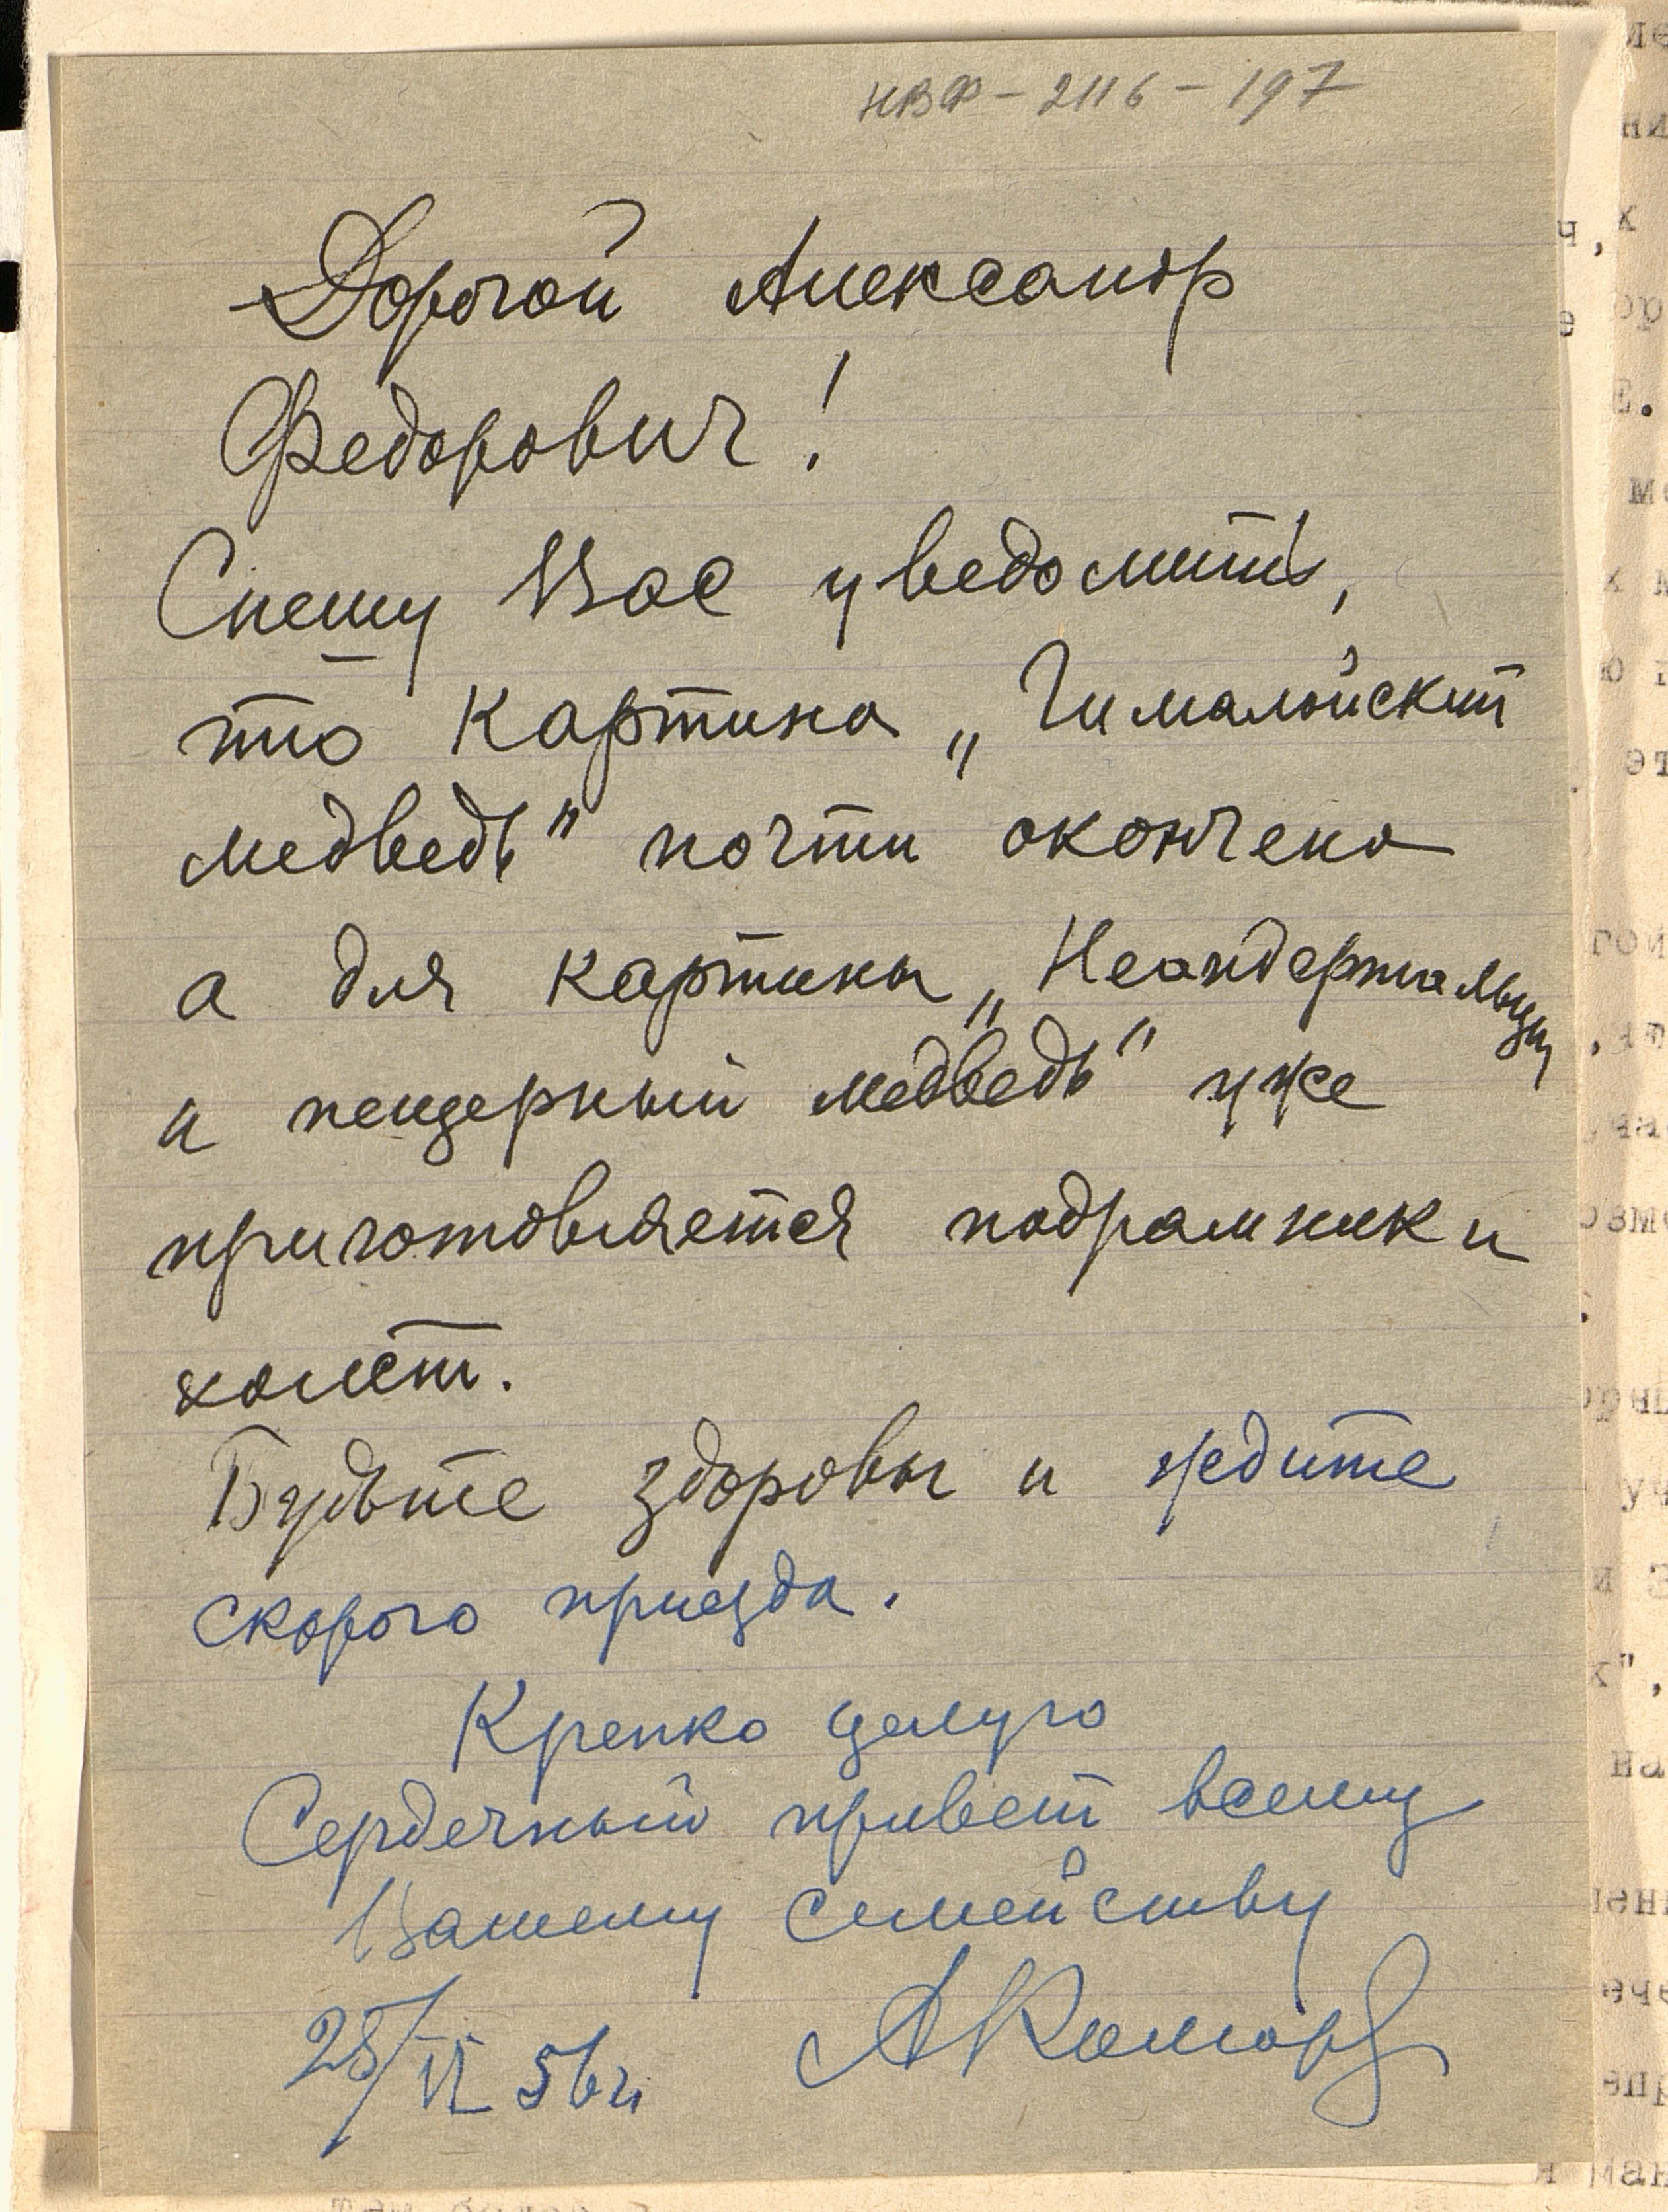 НВФ – 2116 – 197
Дорогой Александр
Федорович!
Спешу Вас уведомить,
что картина „Гималайский
медведь" почти окончена
а для картины „Неандертальцы
и пещерный медведь" уже
приготовляется подрамник и
холст.
Будьте здоровы и ждите
скорого приезда.
Крепко целую
Сердечный привет всему
Вашему семейству
АКомаров
28/VI 56 г.